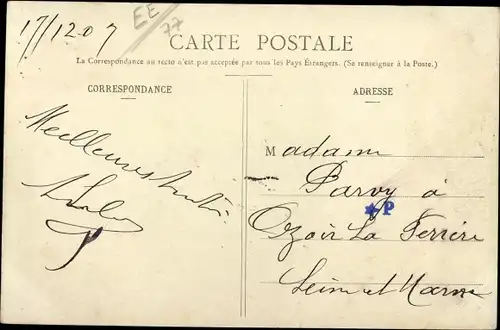 17/12 07
EE
77
CARTE POSTALE
La Correspondance au recto n'est pas acceptée par tous les Pays Étrangers. (Se renseigner à la Poste.)
CORRESPONDANCE
Meilleures
ADRESSE
Madame
Parvy à
P
Ozoir La Ferrière
Seine et Marne